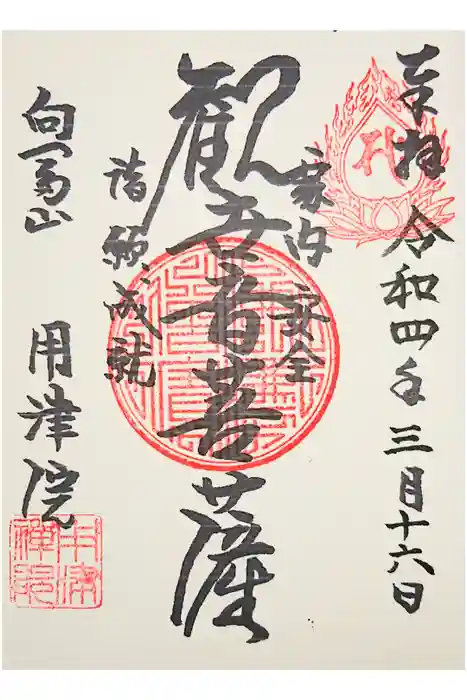 奉拝 令和四年三月十六日
家内安全
観世音菩薩
諸願成就
向冨山 用津院
用津禅院